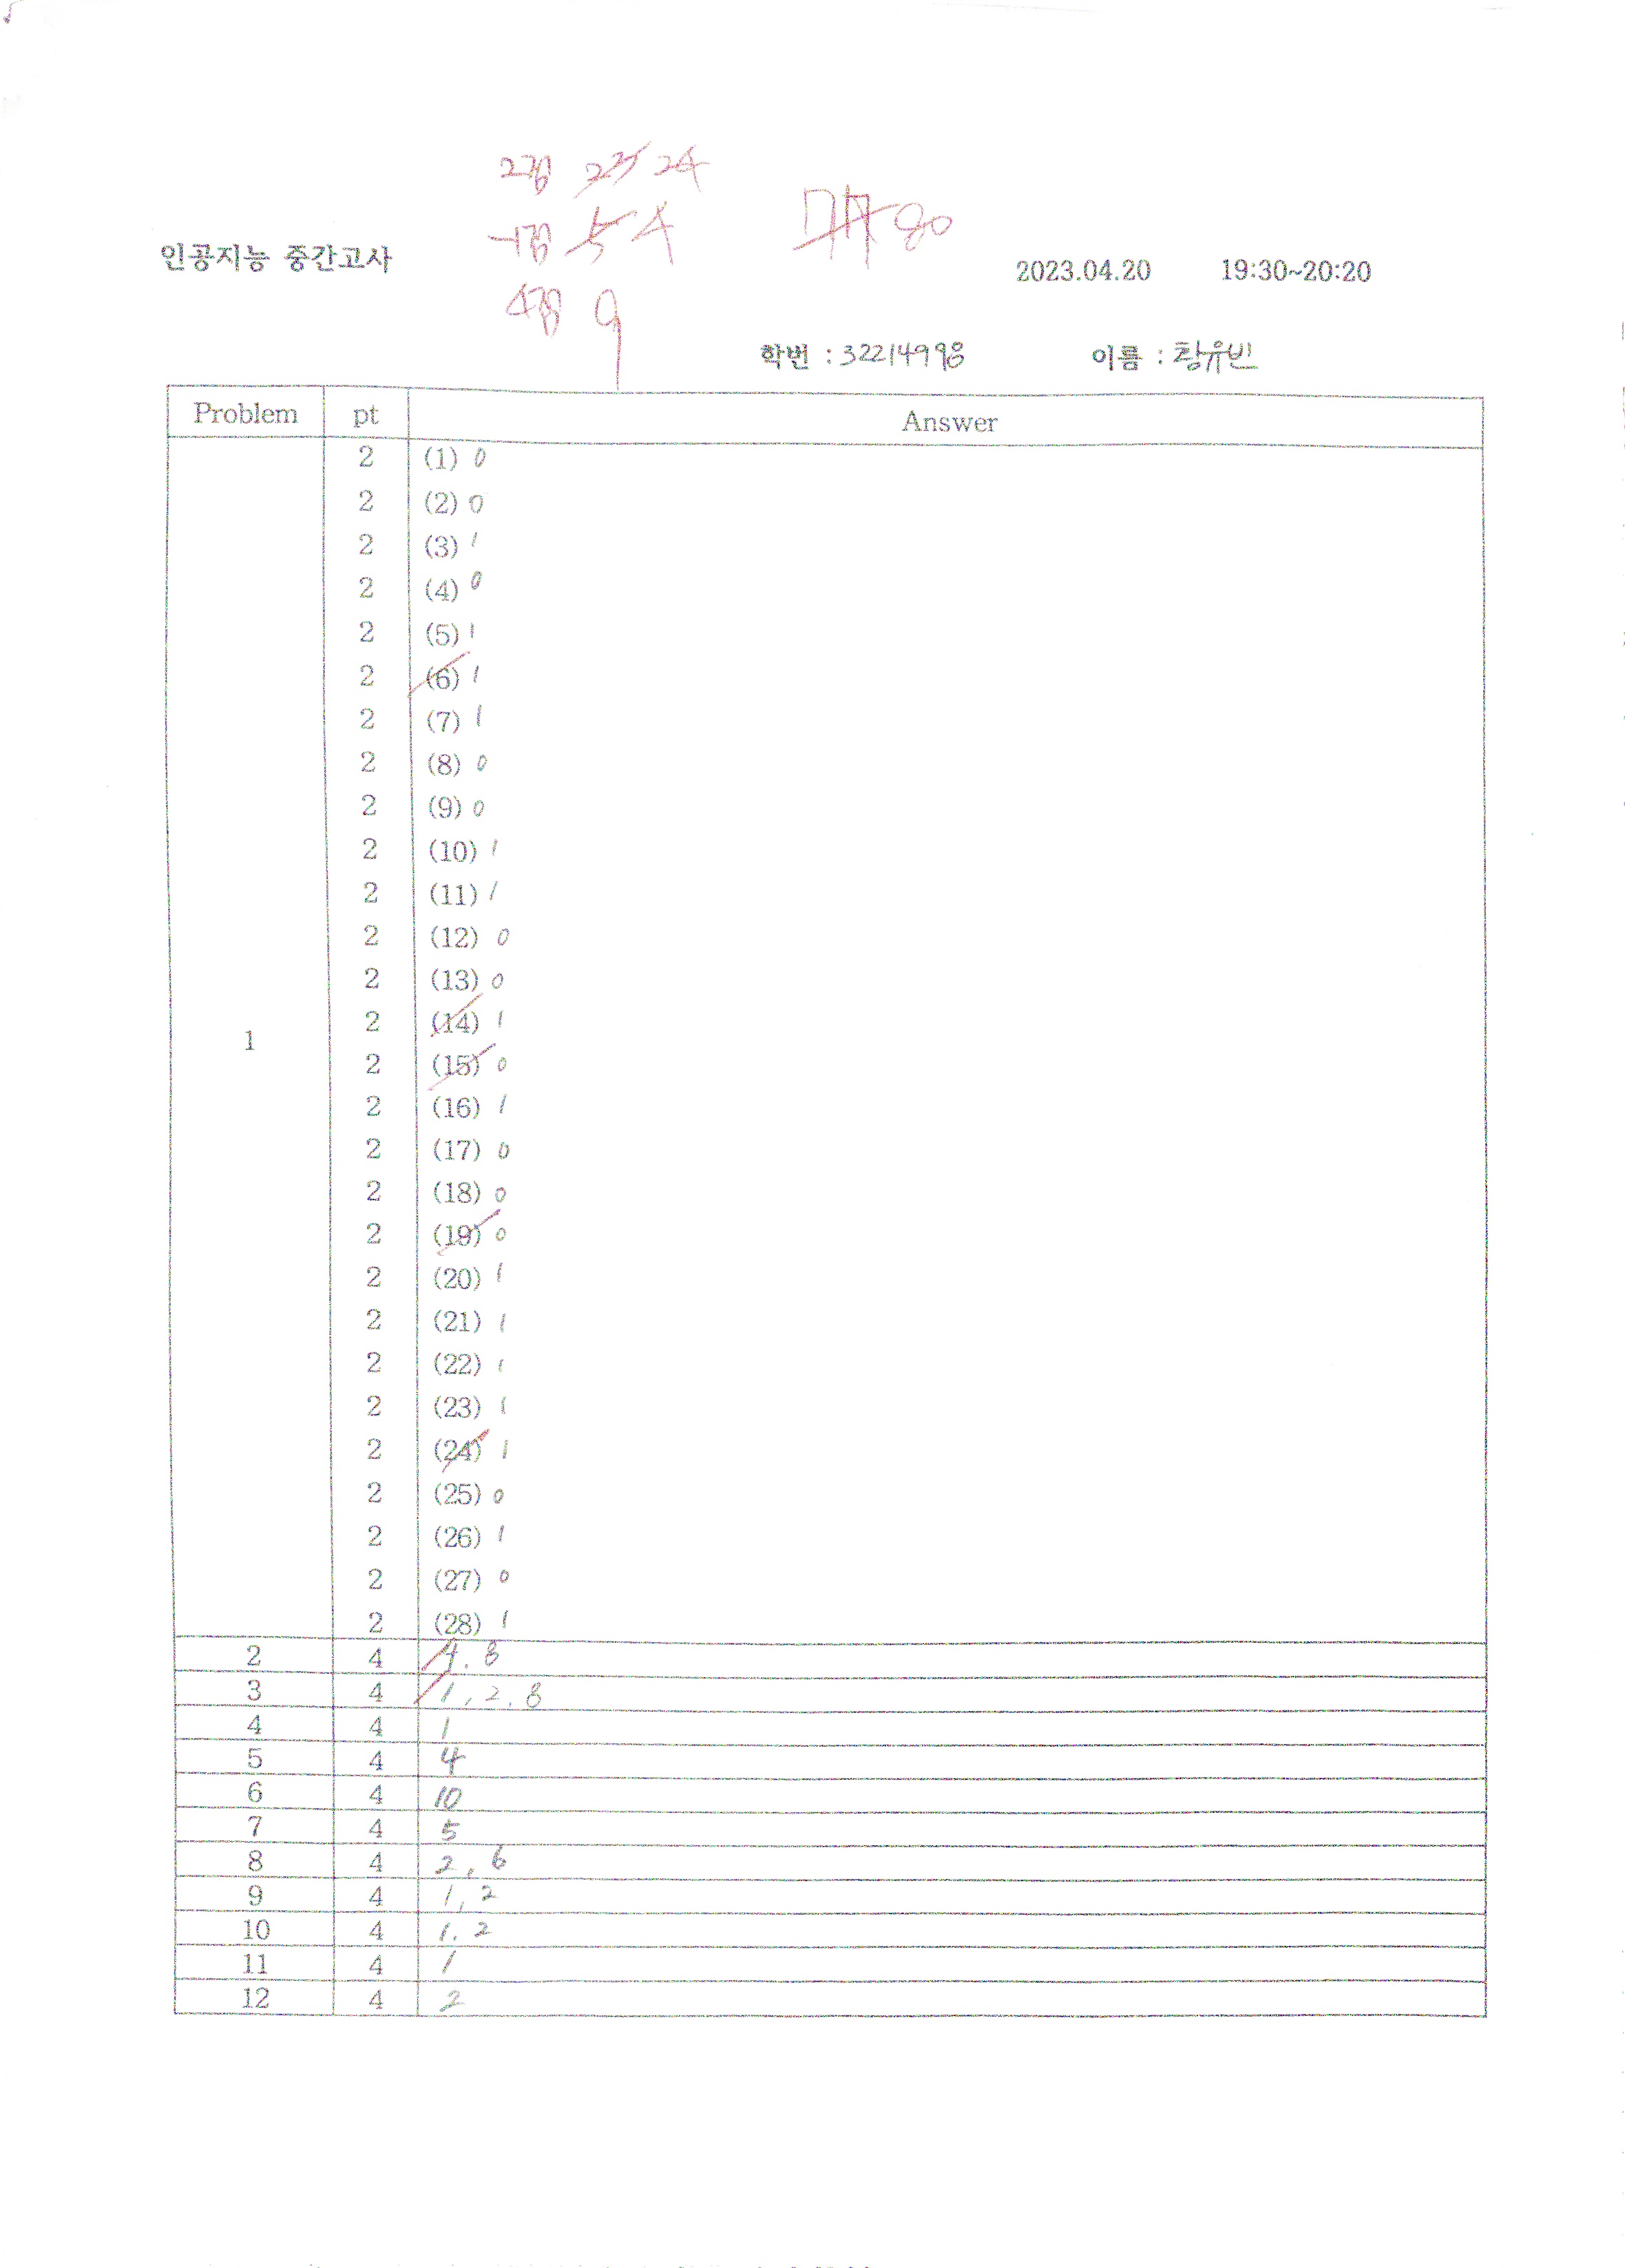 2점 23 24
-1점 5 4
77 80
인공지능 중간고사
2023.04.20 19:30~20:20
4점 9
학번 : 32214998 이름 : 황유빈
Problem pt Answer
2 (1) 0
2 (2) 0
2 (3) 1
2 (4) 0
2 (5) 1
2 (6) 1
2 (7) 1
2 (8) 0
2 (9) 0
2 (10) 1
2 (11) 1
2 (12) 0
2 (13) 0
2 (14) 1
1
2 (15) 0
2 (16) 1
2 (17) 0
2 (18) 0
2 (19) 0
2 (20) 1
2 (21) 1
2 (22) 1
2 (23) 1
2 (24) 1
2 (25) 0
2 (26) 1
2 (27) 0
2 (28) 1
2 4 1. 8
3 4 1, 2, 8
4 4 1
5 4 4
6 4 10
7 4 5
8 4 2, 6
9 4 1, 2
10 4 1. 2
11 4 1
12 4 2